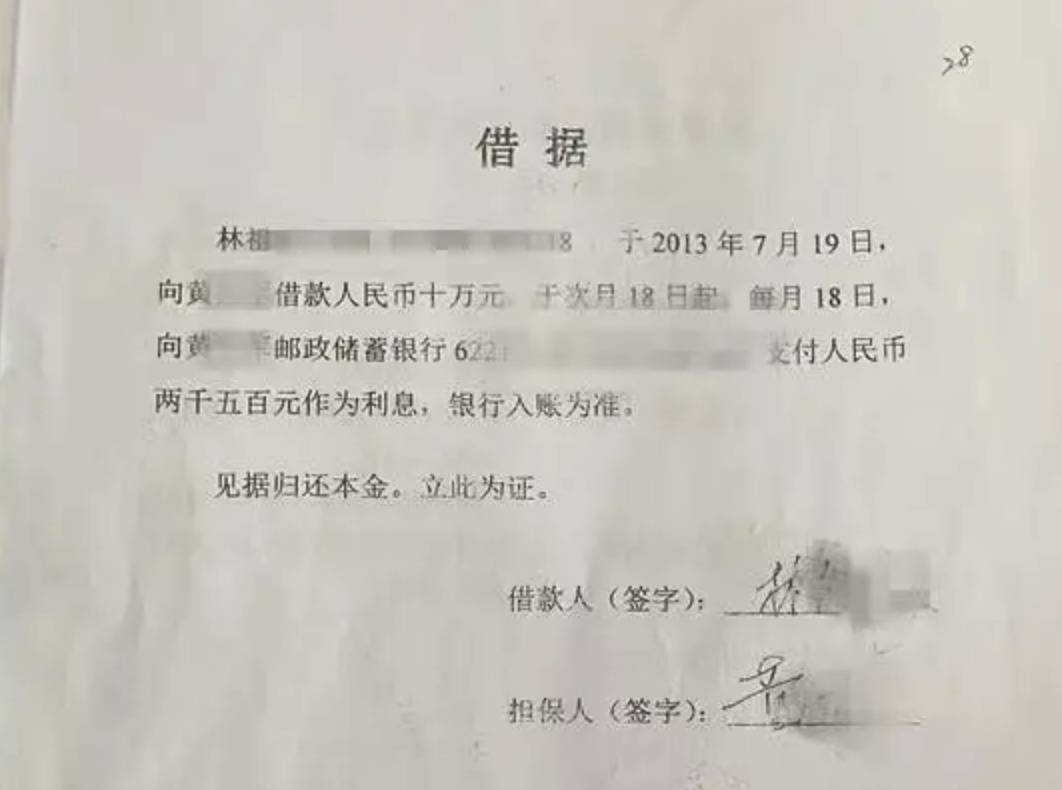 28
借据
林祖 18 于2013年7月19日，
向黄 借款人民币十万元，于次月18日起，每月18日，
向黄 邮政储蓄银行622 支付人民币
两千五百元作为利息，银行入账为准。
见据归还本金。立此为证。
借款人（签字）：林
担保人（签字）：